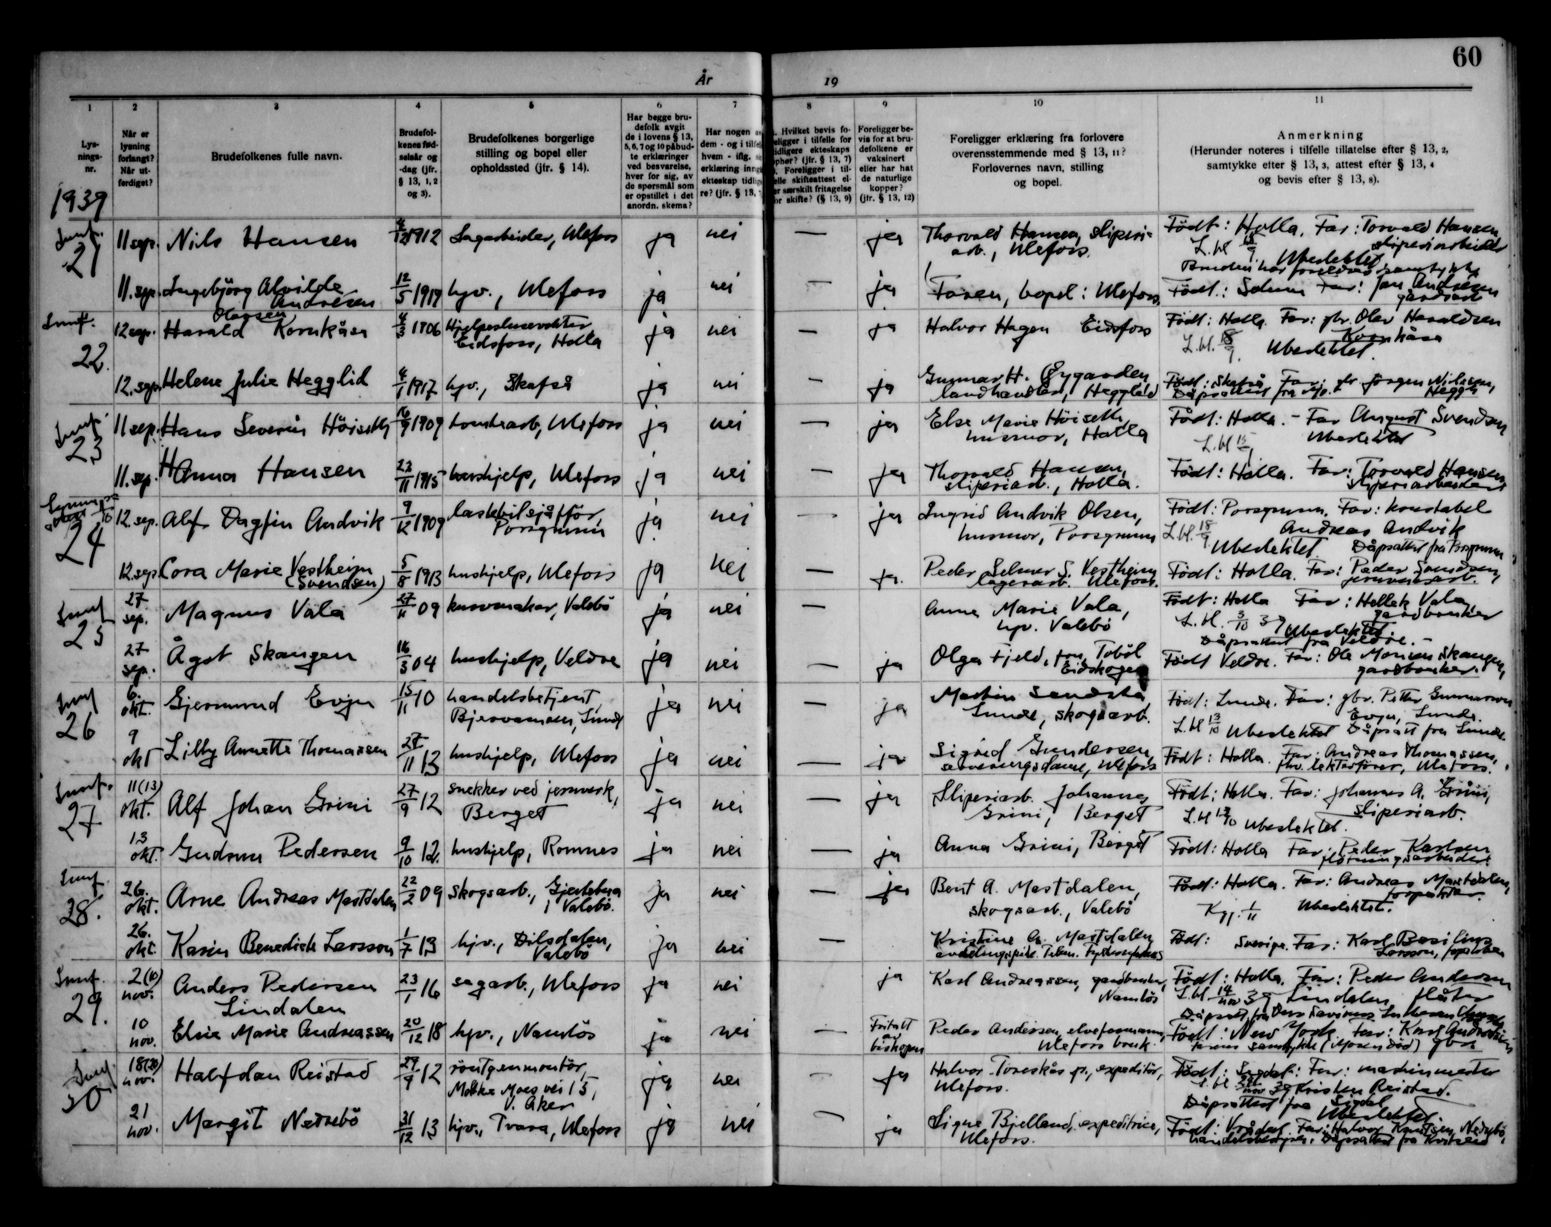 60
År 19
1 2 3 4 5 6 7 8 9 10 11
Lys-
nings-
nr.
Når er
lysning
forlangt?
Når ut-
ferdiget?
Brudefolkenes fulle navn.
Brudefol-
kenes fød-
selsår og
-dag (jfr.
§ 13, 1, 2
og 3).
Brudefolkenes borgerlige
stilling og bopel eller
opholdssted (jfr. § 14).
Har begge bru-
defolk avgit
de i lovens § 13,
5, 6, 7 og 10 påbud-
te erklæringer
ved besvarelse,
hver for sig, av
de spørsmål som
er opstillet i det
anordn. skema?
Har nogen a
dem - og i tilfe
hvem - iflg.
erklæring inng
ekteskap tidlig
re? (jfr. § 13,
Hvilket bevis fo-
religger i tilfelle for
tidligere ekteskaps
ophør? (jfr. § 13, 7)
Foreligger i til-
felle skifteattest el-
er særskilt fritagelse
for skifte? (§ 13, 9)
Foreligger be-
vis for at bru-
defolkene er
vaksinert
eller har hat
de naturlige
kopper?
(jfr. § 13, 12)
Foreligger erklæring fra forlovere
overensstemmende med § 13, 11?
Forlovernes navn, stilling
og bopel.
Anmerkning
(Herunder noteres i tilfelle tillatelse efter § 13, 2,
samtykke efter § 13, 3, attest efter § 13, 4
og bevis efter § 13, 8).
1939
21 11 sep. Nils Hansen 1912 Sagarbeider, Ulefoss ja nei — ja Thorvald Hansen, sliperi-
arb., Ulefoss. Født: Holla. Far: Torvald Hansen,
sliperiarbeider
Ubeslektet
11. sep. Ingebjørg Alvilde
Andresen 12/5 1919 hjv., Ulefoss ja nei — ja Faren, bopel: Ulefoss Født: Solum Far: Jan Andresen
22 12 sep. Harald Olavsen Kornkåsa 4/3 1906
Eidsfoss, Holla ja nei — ja Halvor Hagen Eidsfoss Født: Holla. Far: gbr. Olav Haraldsen
Kornkåsa
L.bl. 18/9. Ubeslektet.
12. sep. Helene Julie Hegglid 4/1 1917 hjv., Skafså ja nei — ja Gunnar H. Øygarden,
landhandler, Hegglid Født: Skafså Far: gbr Jørgen Nilssen,
23 11 sep. Hans Severin Høiseth 16/9 1909 tomtearb., Ulefoss ja nei — ja Else Marie Høiseth,
husmor, Holla Født: Holla. - Far August Svendsen
L.bl. 15/9 Ubeslektet
11. sep. Hanna Hansen 22/11 1915 hushjelp, Ulefoss ja nei — ja Thorvald Hansen,
sliperiarb., Holla. Født: Holla. Far: Torvald Hansen,
sliperiarbeider
24 12. sep. Alf Dagfin Andvik 9/12 1909 lastebilsjåfør,
Porsgrunn ja nei — ja Ingrid Andvik Olsen,
husmor, Porsgrunn Født: Porsgrunn. Far: konstabel
Andreas Andvik
L.bl. 18/9 Ubeslektet Dåpsattest fra Porsgrunn
12. sep. Cora Marie Vestheim
(Svendsen) 5/8 1913 hushjelp, Ulefoss ja nei — ja. Peder Selmer S. Vestheim
lagerarb. Ulefoss. Født: Holla. Far: Peder Svendsen,
jernverksarb.
25 27
sep. Magnus Vala 27/11 09 kurvmaker, Valebø ja nei — Anne Marie Vala,
hjv. Valebø Født: Holla Far: Hellek Vala,
gardbruker
L.bl. 3/10 39 Ubeslektet
Dåpsattest fra Veldre. -
27
sep. Ågot Skaugen 16/3 04 hushjelp, Veldre ja nei — ja Olga Fjeld, fru, Tobøl
Eidskogen Født Veldre. Far: Ole Martin Skaugen,
gardbruker.
26 6.
okt. Gjermund Evju 15/11 10 handelsbetjent,
Lunde ja nei — ja Martin Sandsta
Lunde, skogsarb. Født: Lunde. Far: gbr. Petter Gunnarson
Evju, Lunde.
L.bl 13/10 Ubeslektet Dåpsatt fra Lunde
9
okt Lilly Annette Thomassen 27/11 13 hushjelp, Ulefoss ja nei — ja Sigrid Gundersen,
serveringsdame, Ulefoss Født: Holla. Far: Andreas Thomassen,
Ulefoss.
27 11 (13)
okt. Alf Johan Grini 27/9 12 snekker ved jernverk,
Berget ja nei — ja Sliperiarb. Johannes
Grini, Berget Født: Holla. Far: Johannes A. Grini,
sliperiarb.
L.bl 13/10 Ubeslektet.
13
okt. Gudrun Pedersen 9/10 12. hushjelp, Romnes ja nei — ja Anna Grini, Berget Født: Holla Far: Peder Karlsen
fløtningsarbeider.
28. 26.
okt. Arne Andreas Mastdalen 22/2 09 skogsarb.,
i Valebø. ja nei — ja Bent A. Mastdalen,
skogsarb., Valebø Født: Holla. Far: Andreas Mastdalen,
1/11 Ubeslektet.
26.
okt. Karin Benedick Larsson 1/7 13 hjv., Dilsdalen,
Valebø ja nei — Kristine A. Mastdalen Født: Sverige. Far: Karl Basilius
Larsson,
29. 2 (10)
nov. Anders Pedersen
Lindalen 23/1 16 sagarb., Ulefoss ja nei ja Karl Andreassen, gardbruker,
Namløs Født: Holla. Far: Peder Andersen
Lindalen, fløter
L.bl. 14/nov 39
10
nov. Elsie Marie Andreassen 20/12 18 hjv., Namløs ja nei — Fritatt
av
biskopen Peder Andersen, elveformann,
Ulefoss bruk. Født: New York. Far: Karl Andreassen
farens samtykke (Moren død) gbr.
30 18 (20)
nov. Halfdan Reistad 29/9 12 røntgenmontør,
Moltke Moes vei 15,
V. Aker ja nei — ja Halvor Toreskås jr., expeditør,
Ulefoss. Født: Far: maskinmester
Kristen Reistad.
Dåpsattest fra
Ubeslektet.
21
nov. Margit Nedrebø 31/12 13 hjv., Tvara, Ulefoss ja nei — ja Signe Bjelland, expeditrice,
Ulefoss. Født: Far: Halvor Knutsen Nedrebø,